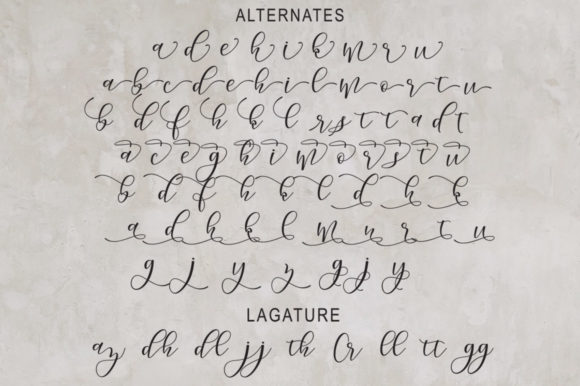 ALTERNATES
a d e h i k m r u
a b c d e h i l m o r t u
b d f h k l r s t t a d t
a c e g h i m o r s t u
b d f h k l d h k
a d h k l m n r t u
g j y z g j y
LAGATURE
az dh dl jj th Cr ll tt gg